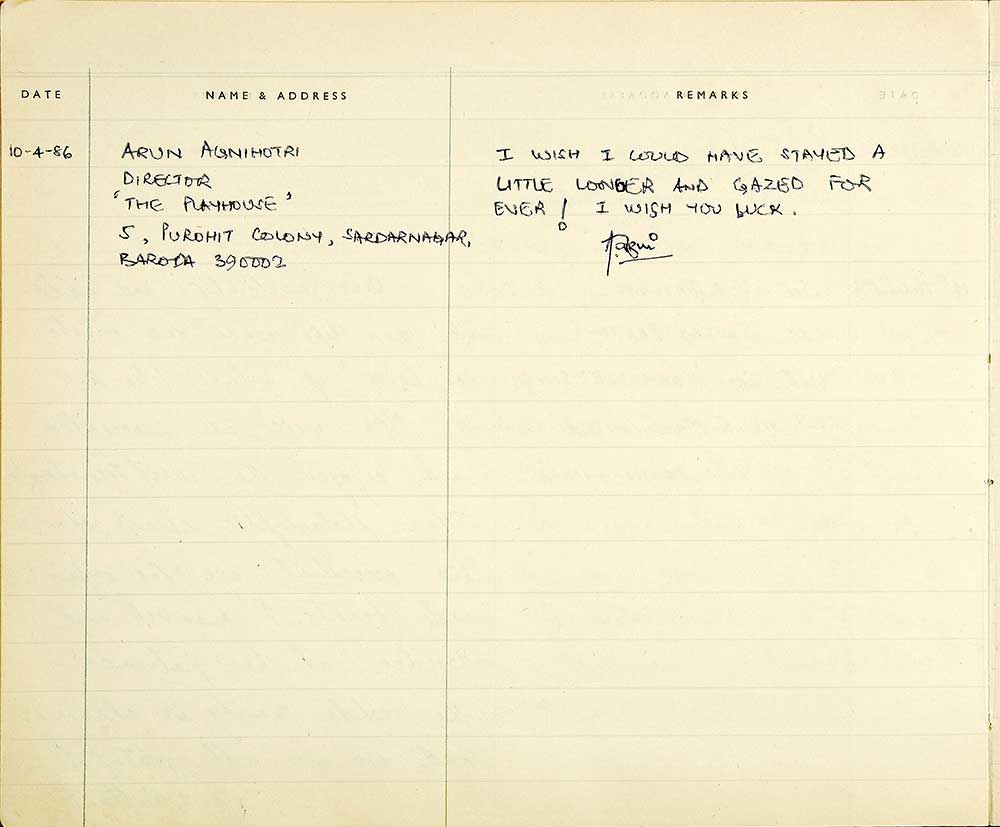 DATE NAME & ADDRESS REMARKS
10-4-86
ARUN AGNIHOTRI
DIRECTOR
'THE PLAYHOUSE'
5, PUROHIT COLONY, SARDARNAGAR,
BARODA 390002
I WISH I COULD HAVE STAYED A
LITTLE LONGER AND GAZED FOR
EVER! I WISH YOU LUCK.